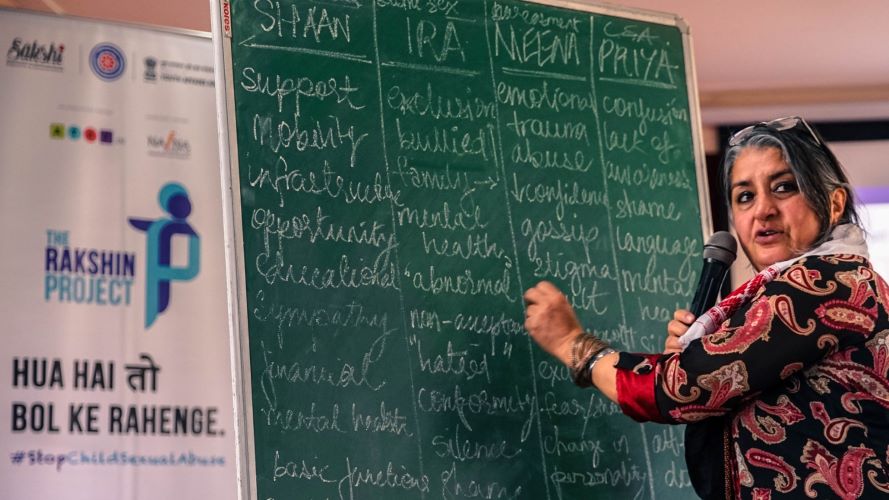 Sakshi
THE
RAKSHIN
PROJECT
HUA HAI तो
BOL KE RAHENGE.
#StopChildSexualAbuse
SHAAN
support
mobility
opportunity
educational
sympathy
financial
mental health
basic functions
same sex
IRA
exclusion
bullied
family →
mental
health
"abnormal"
"hatred"
conformity
silence
shame
assessment
MEENA
emotional
trauma
abuse
confidence
gossip
stigma
change in
personality
CSA
PRIYA
confusion
lack of
awareness
shame
language
mental